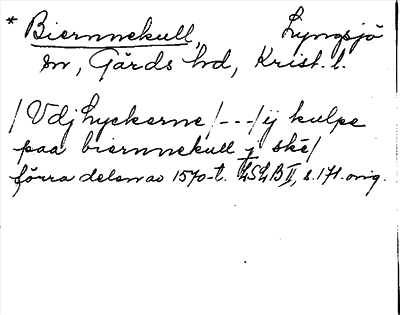 * Biernnekull, Lyngsjö
sn, Gärds hd, Krist. l.
/Vdj Lyckerne/---/ij kulpe
paa biernnekull j skē/
förra delen av 1570-t. LSLB II, s. 171. orig.